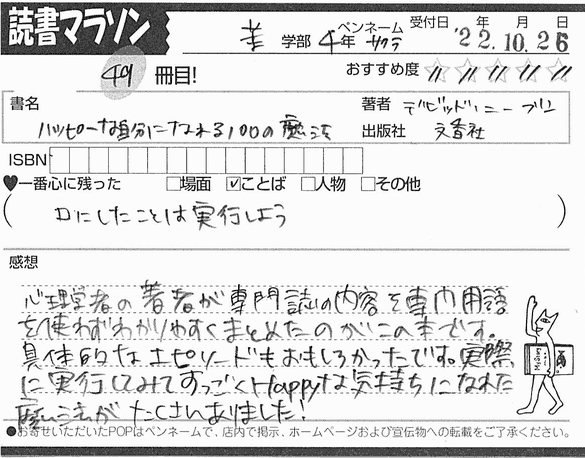 読書マラソン
学部 4年 ペンネーム サクラ 受付日 '22年.10月.26日
49 冊目!
おすすめ度 ☆☆☆☆☆
書名 著者 デビッド・ニーブン
ハッピーな自分になれる100の魔法 出版社 文香社
ISBN
♥一番心に残った □場面 ☑ことば □人物 □その他
(口にしたことは実行しよう)
感想
心理学者の著者が専門誌の内容を専門用語
を使わずわかりやすくまとめたのがこの本です。
具体的なエピソードもおもしろかったです。実際
に実行してみてすっごくHappyな気持ちになれた
魔法がたくさんありました!
●お寄せいただいたPOPはペンネームで、店内で掲示、ホームページおよび宣伝物への転載をご了承ください。